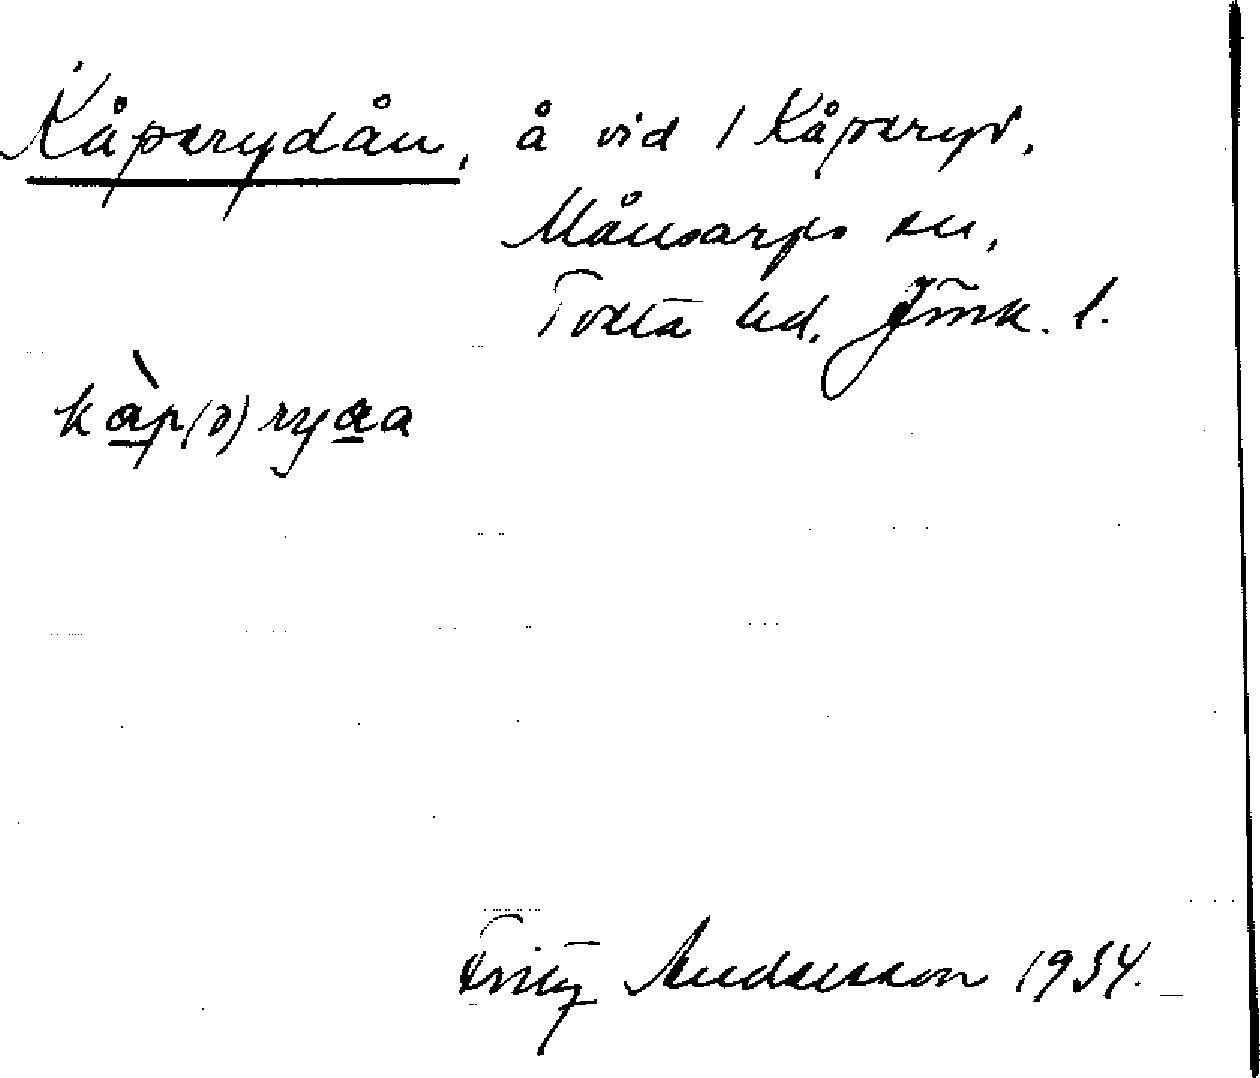 Kåperydån, å vid 1 Kåperyd,
Månsarps sn,
Tveta hd, Jmk. l.
kå̀p(ə)ryåa
Fritz Andersson 1934.